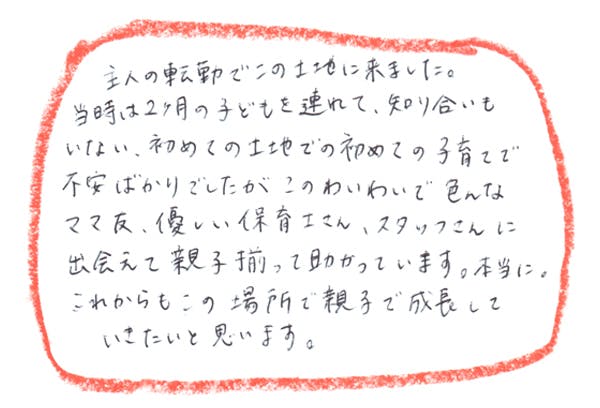 主人の転勤でこの土地に来ました。
当時は2ヶ月の子どもを連れて、知り合いも
いない、初めての土地での初めての子育てで
不安ばかりでしたがこのわいわいで色んな
ママ友、優しい保育士さん、スタッフさんに
出会えて親子揃って助かっています。本当に。
これからもこの場所で親子で成長して
いきたいと思います。